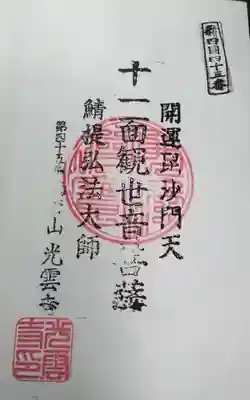 新四国四十三番
開運毘沙門天
十一面観世音菩薩
鯖提弘法大師
第四十五
山光雲寺